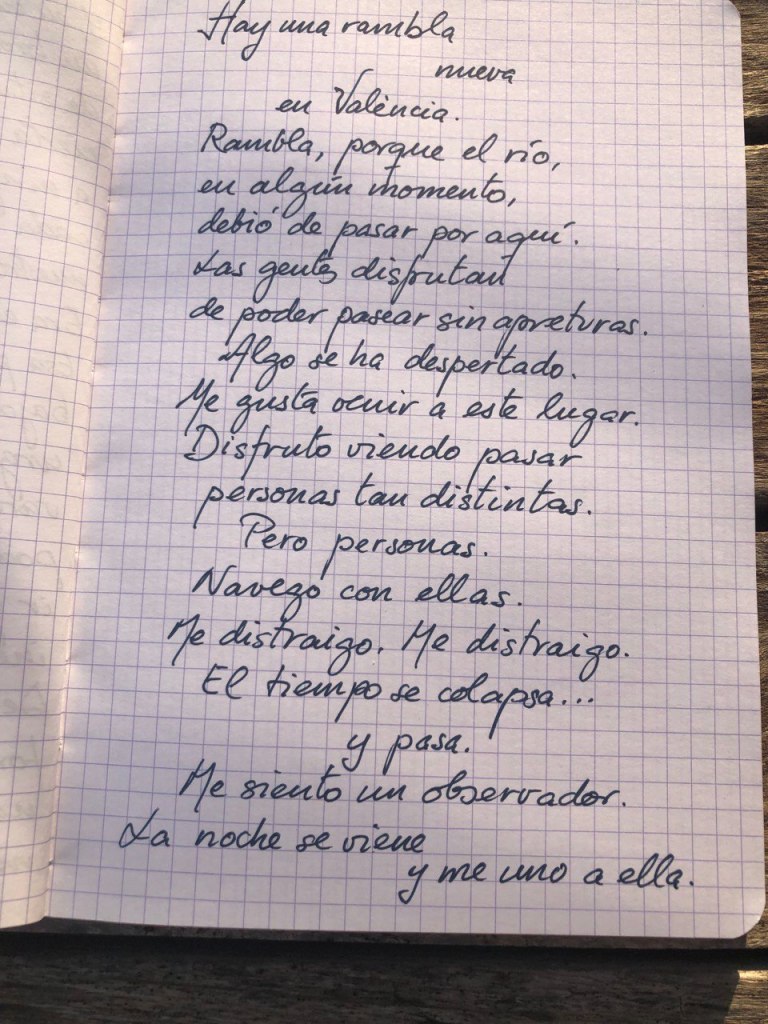 Hay una rambla
nueva
en València.
Rambla, porque el río,
en algún momento,
debió de pasar por aquí.
Las gentes disfrutan
de poder pasear sin apreturas.
Algo se ha despertado.
Me gusta venir a este lugar.
Disfruto viendo pasar
personas tan distintas.
Pero personas.
Navego con ellas.
Me distraigo. Me distraigo.
El tiempo se colapsa...
y pasa.
Me siento un observador.
La noche se viene
y me uno a ella.